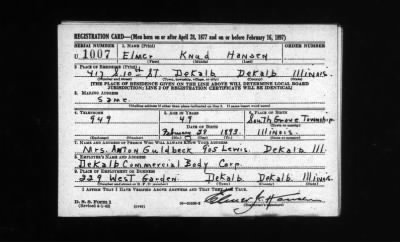 REGISTRATION CARD—(Men born on or after April 28, 1877 and on or before February 16, 1897)
SERIAL NUMBER 1. NAME (Print) ORDER NUMBER
U 1007 Elmer Knud Hansen
(First) (Middle) (Last)
2. PLACE OF RESIDENCE (Print)
417 S. 10th ST DeKalb DeKalb Illinois
(Number and street) (Town, township, village, or city) (County) (State)
[THE PLACE OF RESIDENCE GIVEN ON THE LINE ABOVE WILL DETERMINE LOCAL BOARD
JURISDICTION; LINE 2 OF REGISTRATION CERTIFICATE WILL BE IDENTICAL]
3. MAILING ADDRESS
Same
[Mailing address if other than place indicated on line 2. If same insert word same]
4. TELEPHONE 5. AGE IN YEARS 6. PLACE OF BIRTH
949 49 South Grove Township
DATE OF BIRTH (Town or county)
February 28 1893 Illinois
(Exchange) (Number) (Mo.) (Day) (Yr.) (State or country)
7. NAME AND ADDRESS OF PERSON WHO WILL ALWAYS KNOW YOUR ADDRESS
Mrs. Anton Guldbeck 905 Lewis DeKalb Ill.
8. EMPLOYER'S NAME AND ADDRESS
DeKalb Commercial Body Corp.
9. PLACE OF EMPLOYMENT OR BUSINESS
229 West Garden DeKalb DeKalb Ill.
(Number and street or R. F. D. number) (Town) (County) (State)
I AFFIRM THAT I HAVE VERIFIED ABOVE ANSWERS AND THAT THEY ARE TRUE.
D. S. S. Form 1
(Revised 4-1-42) (over) Elmer K. Hansen
(Registrant's signature)